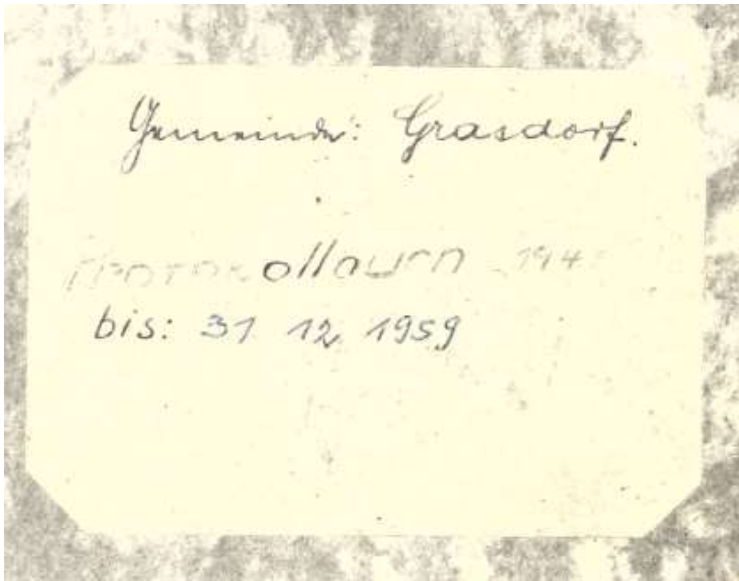 Gemeinde: Grasdorf.
Protokollbuch
bis: 31 12 1959